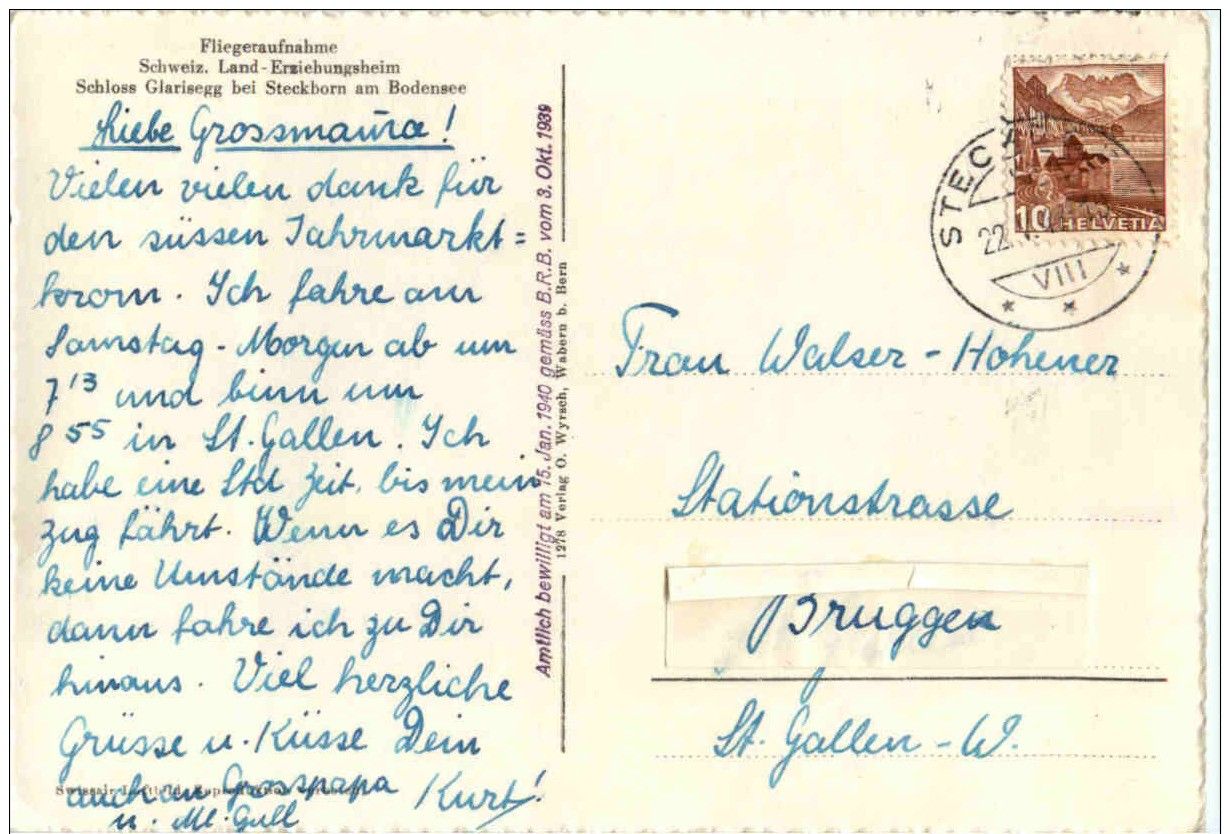 Fliegeraufnahme
Schweiz. Land-Erziehungsheim
Schloss Glarisegg bei Steckborn am Bodensee
Liebe Grossmama!
Vielen vielen dank für
den süssen Jahrmarkt=
krom. Ich fahre am
Samstag-Morgen ab um
7 13 und binn um
8 55 in St. Gallen. Ich
habe eine Std Zeit, bis mein
Zug fährt. Wenn es Dir
keine Umstände macht,
dann fahre ich zu Dir
hinaus. Viel herzliche
Grüsse u. Küsse Dein
auch an Grosspapa Kurt!
u. Ml. Gull
Swissair-Luftbild
Amtlich bewilligt am 15. Jan. 1940 gemäss B.R.B. vom 3. Okt. 1939
1278 Verlag O. Wyrsch, Wabern b. Bern
STECK
22.
VIII
10 HELVETIA
Frau Walser-Hohener
Stationstrasse
Bruggen
St. Gallen-W.